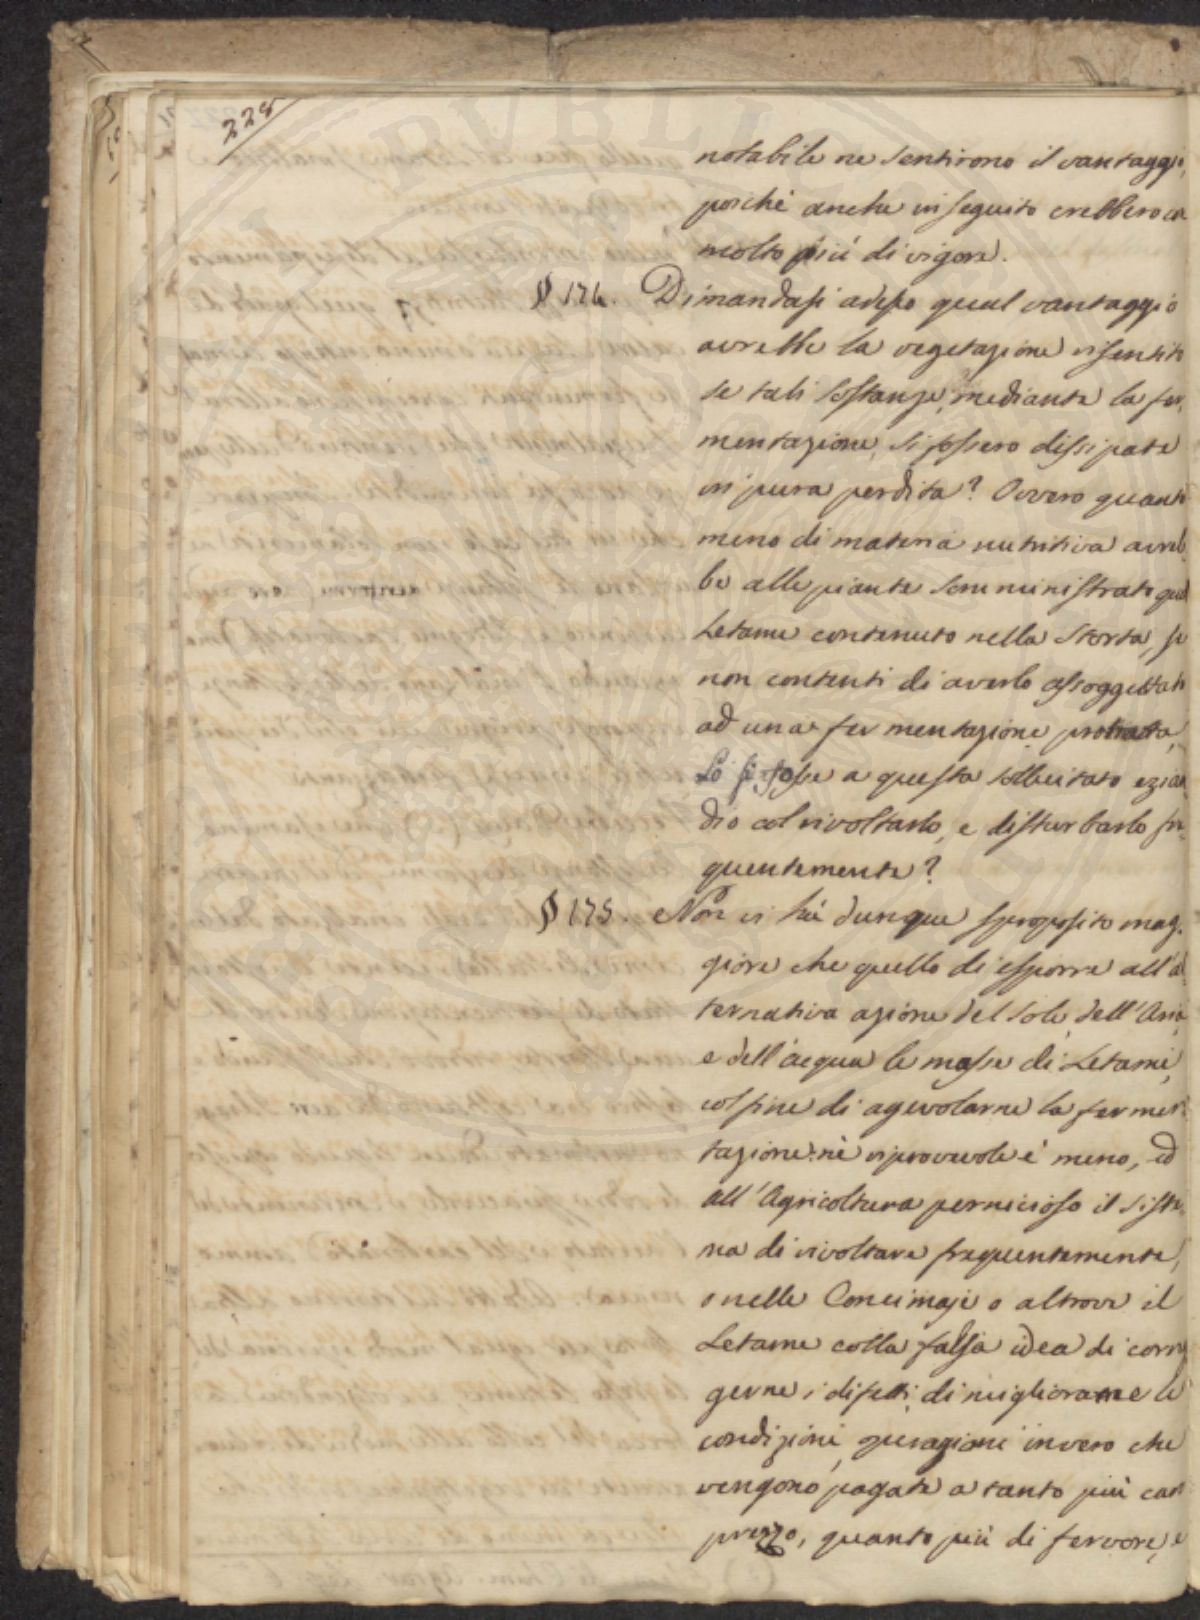 228
notabile ne sentirono il vantaggio,
poichè anche in seguito crebbero con
molto più di vigore.
§ 174. Dimandasi adesso qual vantaggio
avrebbe la vegetazione risentito
se tali sostanze, mediante la fer,
mentazione, si fossero dissipate
in pura perdita? Ovvero quanto
meno di materia nutritiva avreb,
be alle piante somministrato quel
Letame contenuto nella Storta, se
non contenti di averlo assoggettato
ad una fermentazione protratta,
Lo si fosse a questa sollecitato ezian,
dio col rivoltarlo, e disturbarlo fre,
quentemente?
§ 175. Non vi hà dunque sproposito mag,
giore che quello di esporre all'al,
ternativa azione del sole, dell'Aria,
e dell'acqua le masse di Letami,
col fine di agevolarne la fermen,
tazione: nè riprovevole è meno, ed
all'Agricoltura pernicioso il siste,
ma di rivoltare frequentemente,
o nelle Concimaje o altrove il
Letame colla falsa idea di corre,
gerne i difetti, di migliorarne le
condizioni, operazioni invero che
vengono pagate a tanto più caro
prezzo, quanto più di fervore, e